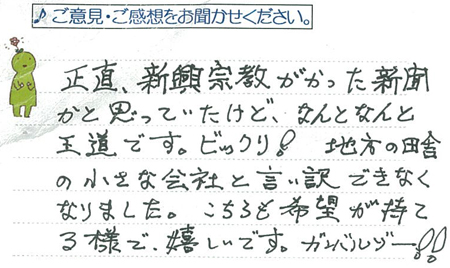 ♪ご意見・ご感想をお聞かせください。
正直、新興宗教がかった新聞
かと思っていたけど、なんとなんと
王道です。ビックリ! 地方の田舎
の小さな会社と言い訳できなく
なりました。こちらも希望が持て
る様で、嬉しいです。ガンバルゾー!!